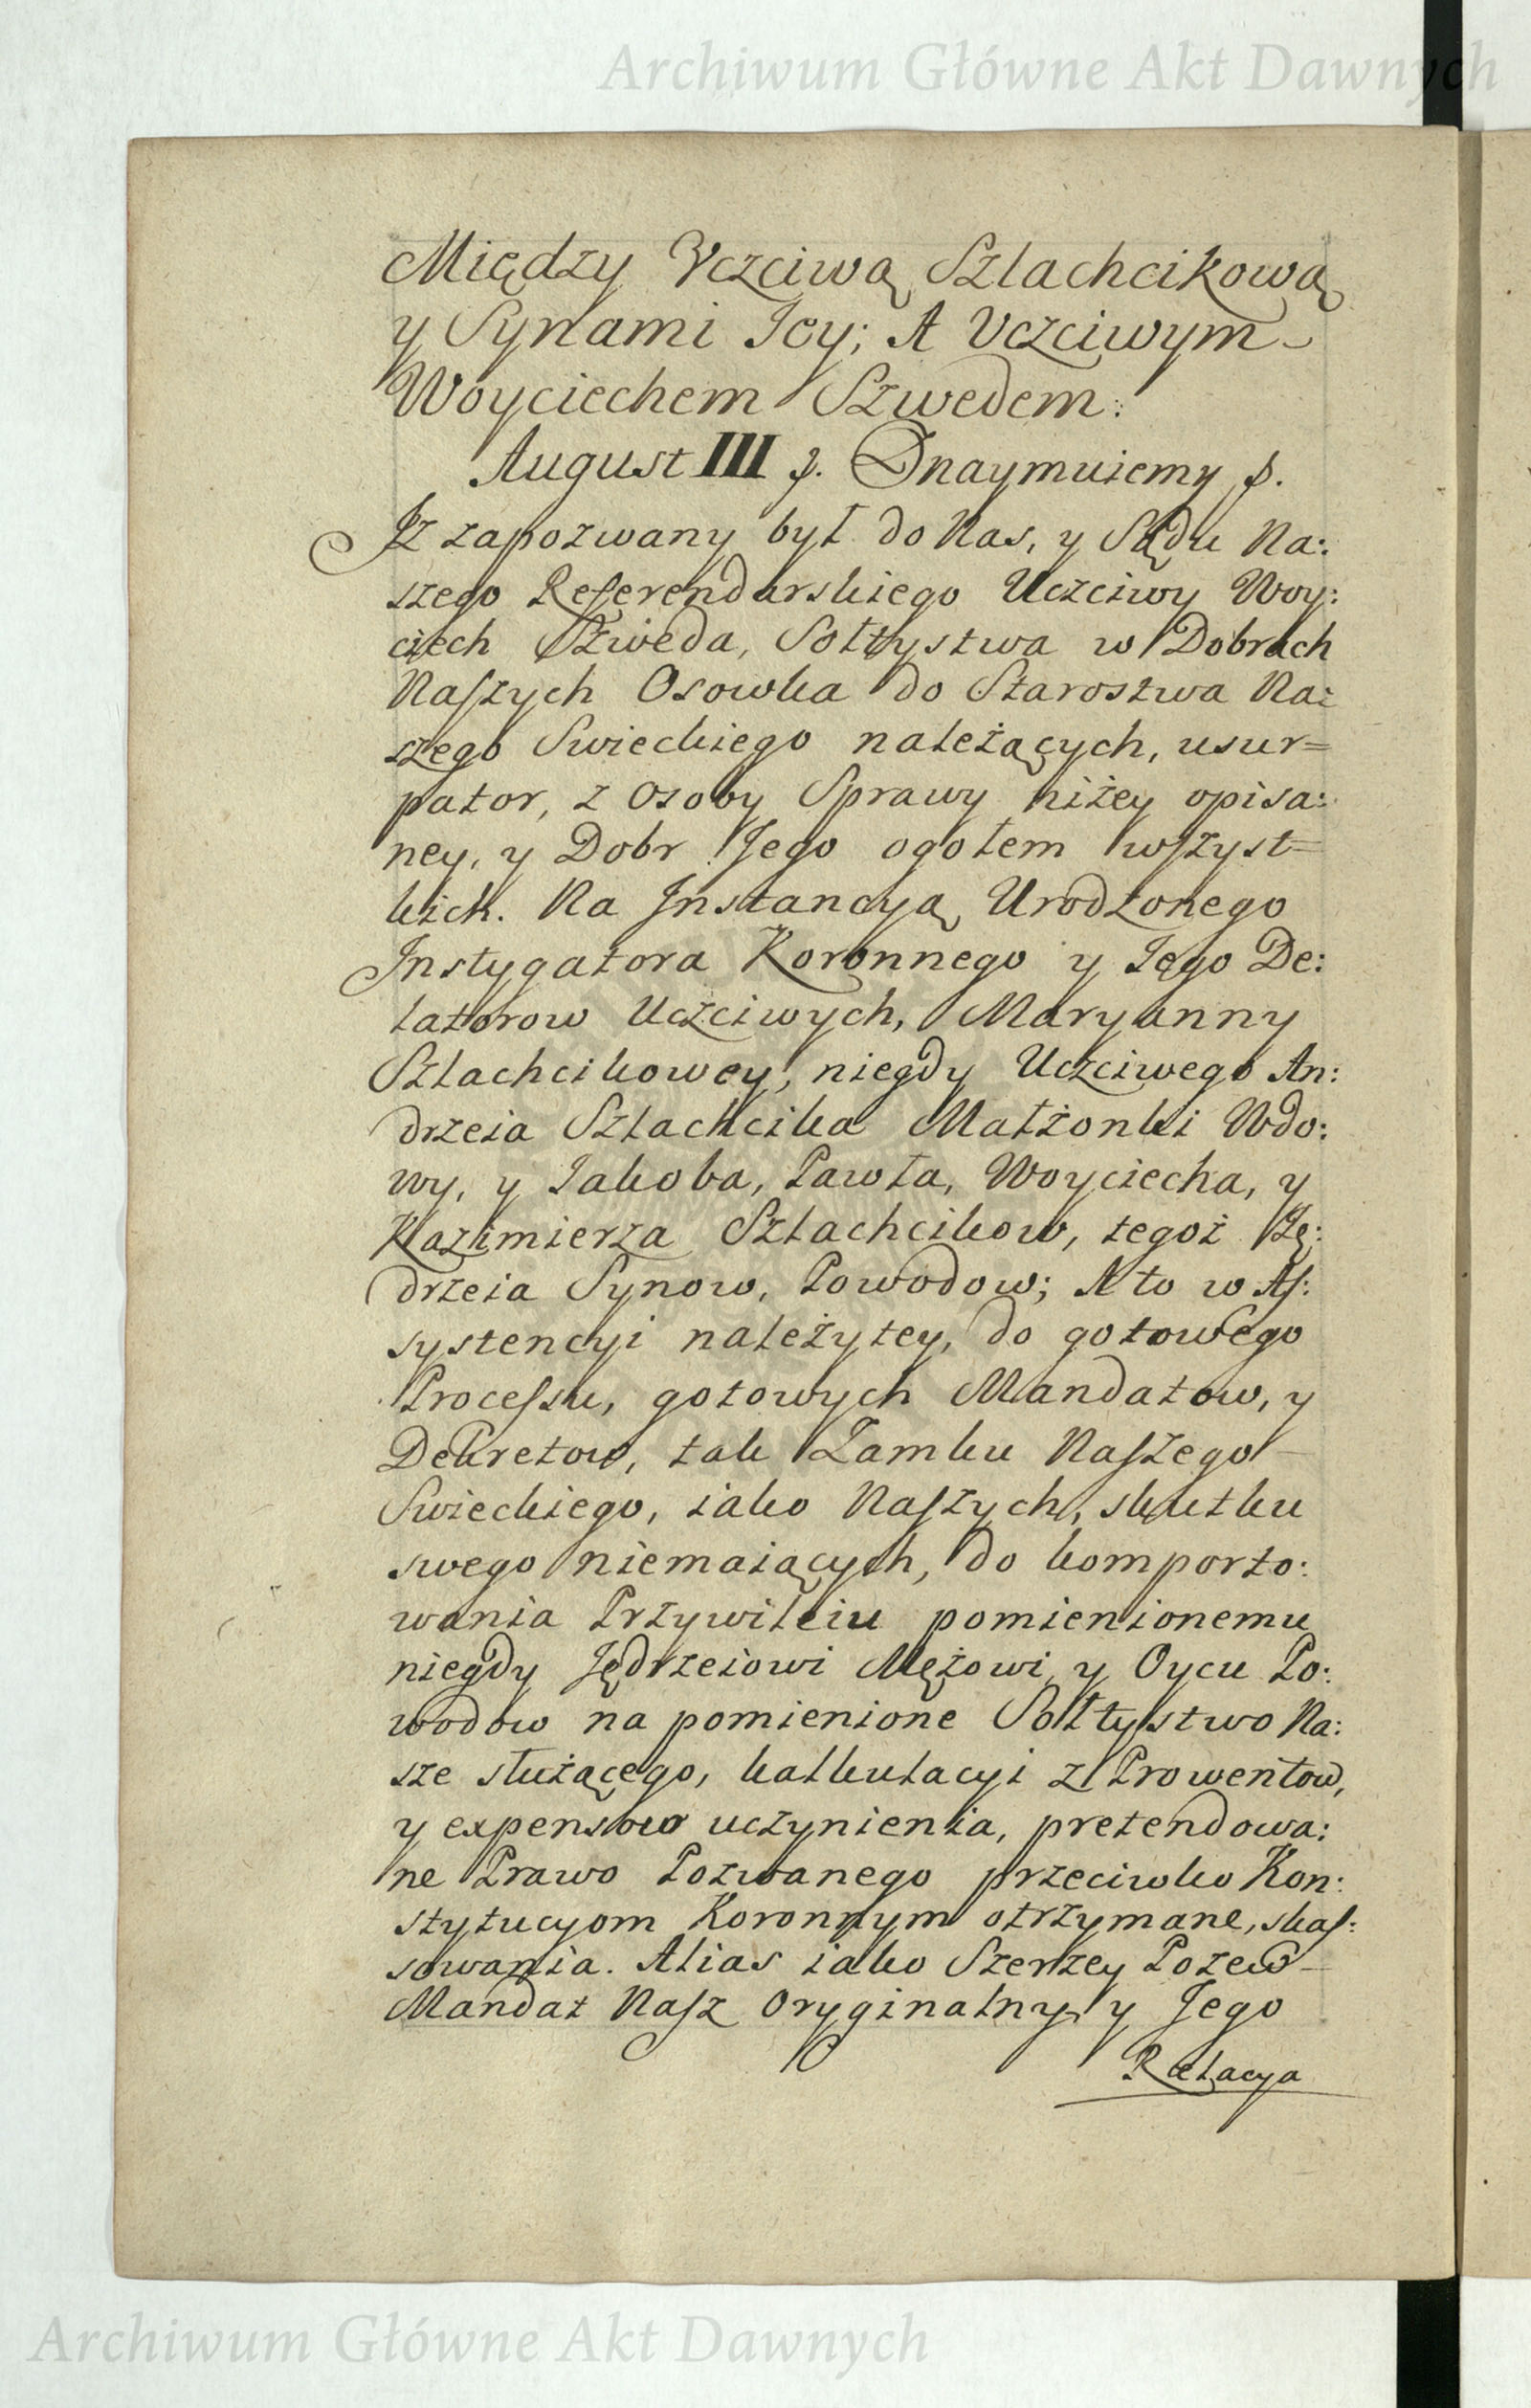 Archiwum Główne Akt Dawnych
Między Vczciwą Szlachcikową
y Synami Jey; A Vczciwym
Woyciechem Szwedem:
August III p. Oznaymuiemy p.
Iż zapozwany był do Nas, y Sądu Na:
szego Referendarskiego Uczciwy Woy:
ciech Szweda, Sołtystwa w Dobrach
Naszych Osowka do Starostwa Na:
szego Swieckiego należących, usur=
pator, z Osoby Sprawy niżey opisa:
ney, y Dobr Jego ogołem wszyst=
kich. Na Instancyą Urodzonego
Instygatora Koronnego y Jego De:
latorow Uczciwych, Maryanny
Szlachcikowey, niegdy Uczciwego An:
drzeia Szlachcika Małżonki Wdo:
wy, y Jakoba, Pawła, Woyciecha, y
Kazimierza Szlachcikow, tegoż Ję:
drzeia Synow, Powodow; A to w As:
systencyi należytey, do gotowego
Processu, gotowych Mandatow, y
Dekretow, tak Zamku Naszego
Swieckiego, iako Naszych, skutku
swego niemaiących, do komporto:
wania Przywileiu pomienionemu
niegdy Jędrzeiowi Mężowi y Oycu Po:
wodow na pomienione Sołtystwo Na:
sze służącego, kalkulacyi z Prowentow,
y expensow uczynienia, pretendowa:
ne Prawo Pozwanego przeciwko Kon:
stytucyom Koronnym otrzymane, skas:
sowania. Alias iako Szerzey Pozew
Mandat Nasz Oryginalny y Jego
Relacya
Archiwum Główne Akt Dawnych